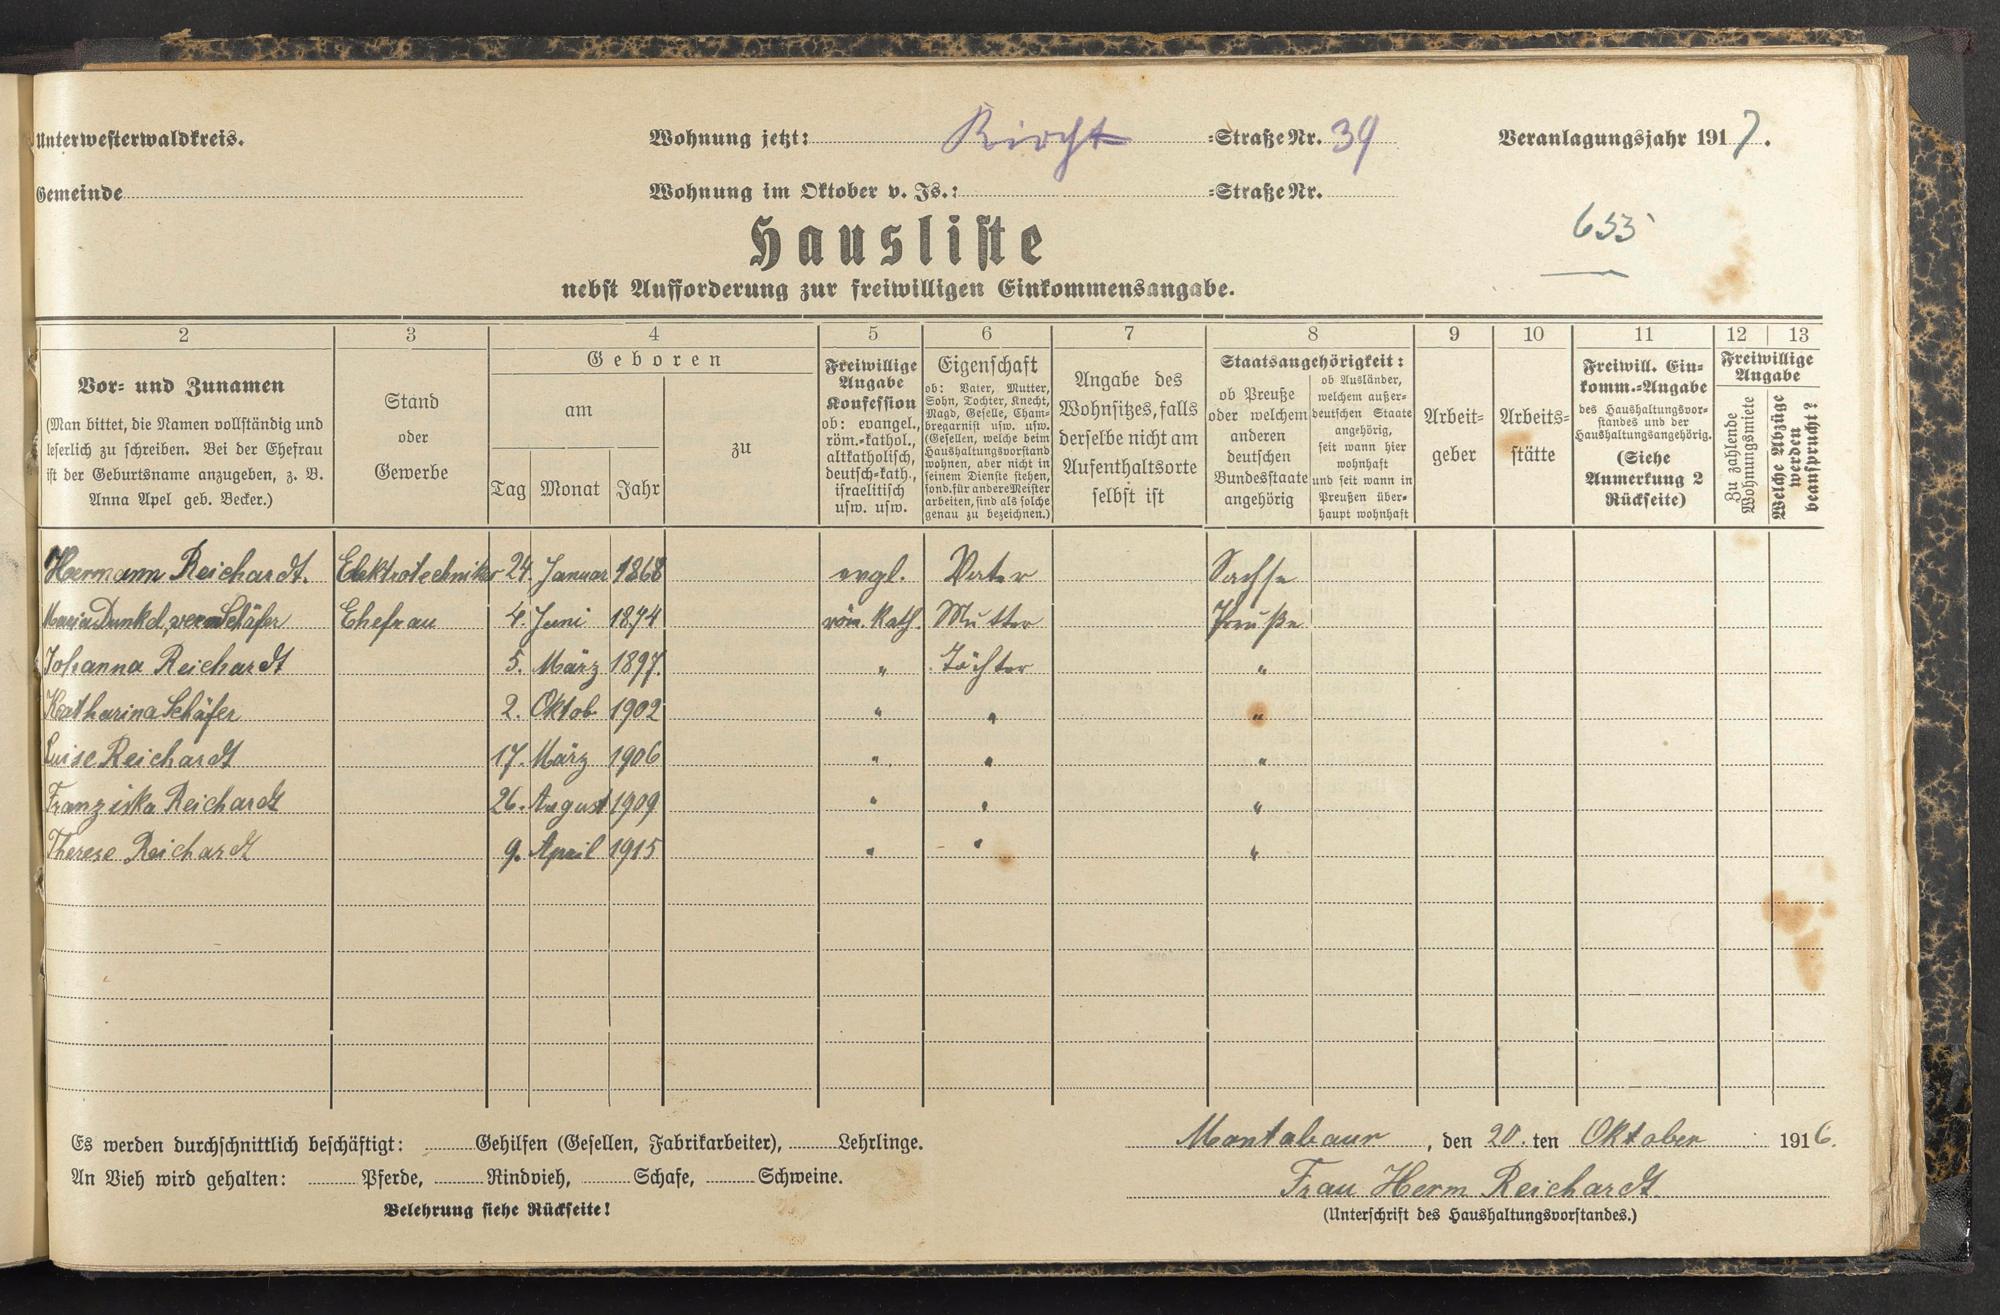 Unterwesterwaldkreis. Wohnung jetzt: Kirch =Straße Nr. 39 Veranlagungsjahr 1917.
Gemeinde Wohnung im Oktober v. Js.: =Straße Nr.
633
Hausliste
nebst Aufforderung zur freiwilligen Einkommensangabe.
2 3 4 5 6 7 8 9 10 11 12 13
Vor- und Zunamen
(Man bittet, die Namen vollständig und
leserlich zu schreiben. Bei der Ehefrau
ist der Geburtsname anzugeben, z. B.
Anna Apel geb. Becker.)
Stand
oder
Gewerbe
Geboren
am
Tag Monat Jahr
zu
Freiwillige
Angabe
Konfession
ob: evangel.,
röm.-kathol.,
altkatholisch,
deutsch-kath.,
israelitisch
usw. usw.
Eigenschaft
ob: Vater, Mutter,
Sohn, Tochter, Knecht,
Magd, Geselle, Cham-
bregarnist usw. usw.
(Gesellen, welche beim
Haushaltungsvorstand
wohnen, aber nicht in
seinem Dienste stehen,
sond. für andere Meister
arbeiten, sind als solche
genau zu bezeichnen.)
Angabe des
Wohnsitzes, falls
derselbe nicht am
Aufenthaltsorte
selbst ist
Staatsangehörigkeit:
ob Preuße
oder welchem
anderen
deutschen
Bundesstaate
angehörig
ob Ausländer,
welchem außer-
deutschen Staate
angehörig,
seit wann hier
wohnhaft
und seit wann in
Preußen über-
haupt wohnhaft
Arbeit-
geber
Arbeits-
stätte
Freiwill. Ein-
komm.-Angabe
des Haushaltungsvor-
standes und der
Haushaltungsangehörig.
(Siehe
Anmerkung 2
Rückseite)
Freiwillige
Angabe
Zu zahlende
Wohnungsmiete
Welche Abzüge
werden
beansprucht?
Hermann Reichardt. Elektrotechniker 24. Januar 1868 evgl. Vater Sachse
Maria Schäfer Ehefrau 4. Juni 1874 röm. Kath. Mutter Preuße
Johanna Reichardt 5. März 1897. " Töchter "
Katharina Schäfer 2. Oktob. 1902 " " "
Luise Reichardt 17. März 1906 " " "
Franziska Reichardt 26. August 1909 " " "
Therese Reichardt 9. April 1915 " " "
Es werden durchschnittlich beschäftigt: Gehilfen (Gesellen, Fabrikarbeiter), Lehrlinge.
An Vieh wird gehalten: Pferde, Rindvieh, Schafe, Schweine.
Belehrung siehe Rückseite!
Montabaur, den 20. ten Oktober 1916.
Frau Herm Reichardt.
(Unterschrift des Haushaltungsvorstandes.)